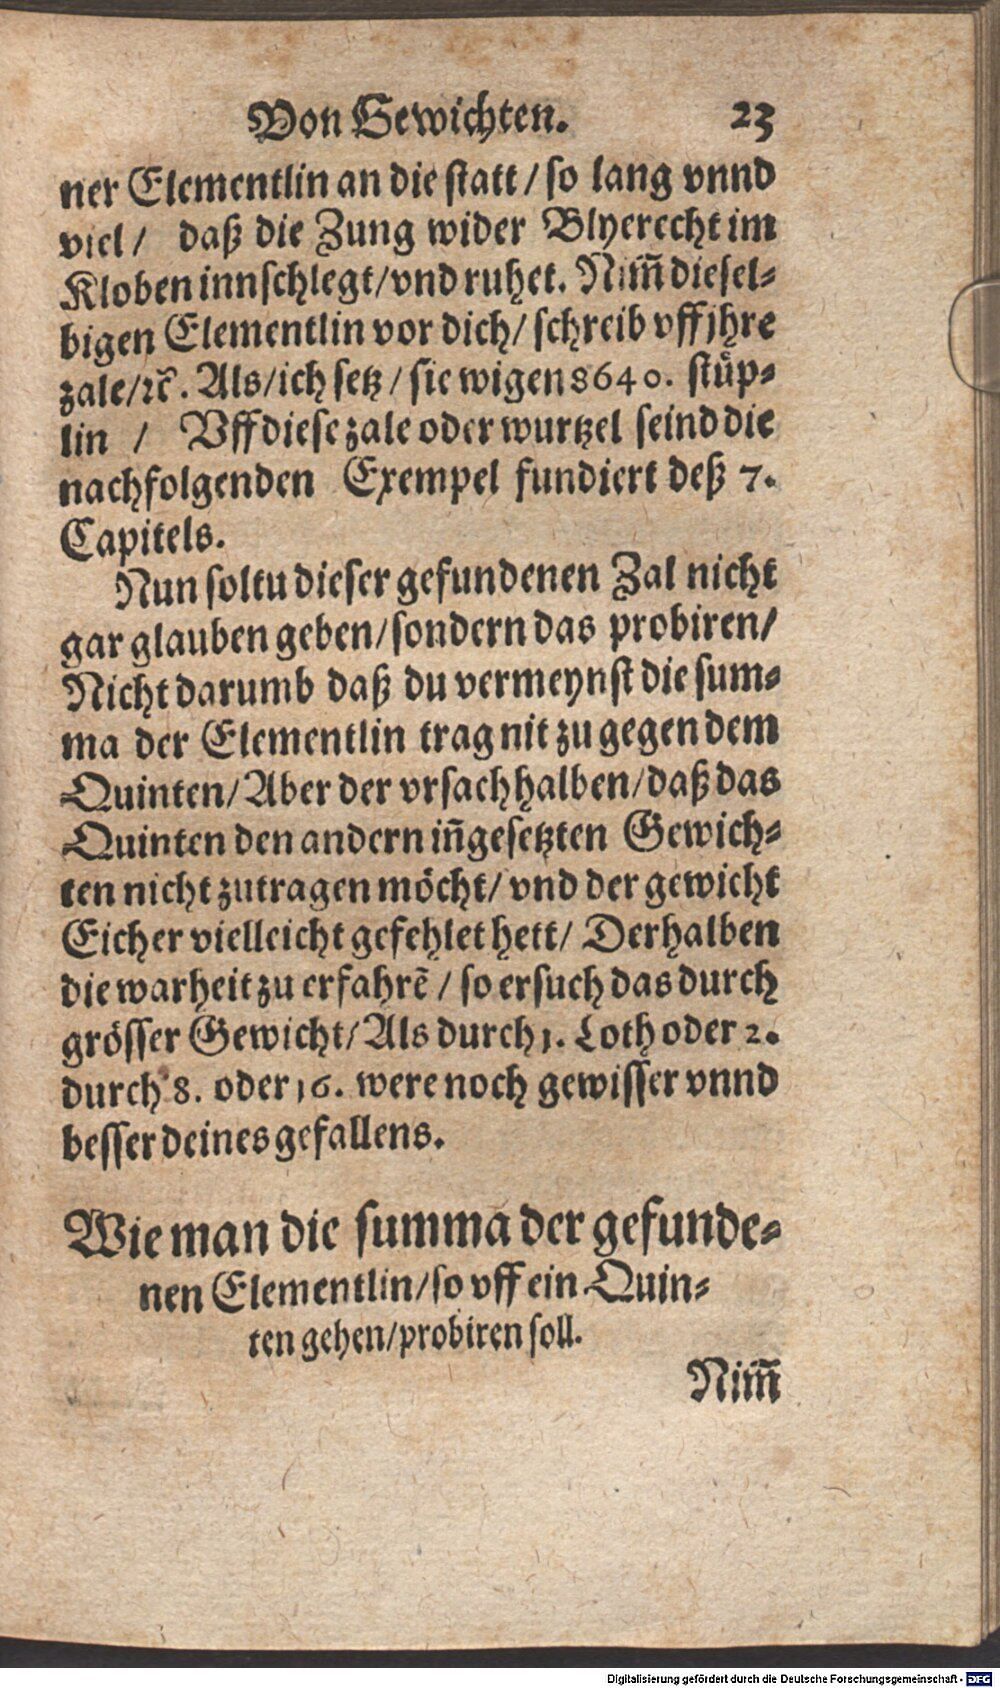 Von Gewichten. 23
ner Elementlin an die statt / so lang vnnd
viel / daß die Zung wider Blyerecht im
Kloben innschlegt/vnd ruhet. Nim̃ diesel⸗
bigen Elementlin vor dich/ schreib vff jhre
zale/ꝛc̃. Als/ich setz / sie wigen 8640. stüp⸗
lin / Vff diese zale oder wurtzel seind die
nachfolgenden Exempel fundiert deß 7.
Capitels.
Nun soltu dieser gefundenen Zal nicht
gar glauben geben/sondern das probiren/
Nicht darumb daß du vermeynst die sum⸗
ma der Elementlin trag nit zu gegen dem
Quinten/Aber der vrsach halben/daß das
Quinten den andern iñgesetzten Gewich⸗
ten nicht zutragen möcht/ vnd der gewicht
Eicher vielleicht gefehlet hett/ Derhalben
die warheit zu erfahrẽ / so ersuch das durch
grösser Gewicht/Als durch 1. Loth oder 2.
durch 8. oder 16. were noch gewisser vnnd
besser deines gefallens.
Wie man die summa der gefunde⸗
nen Elementlin/so vff ein Quin⸗
ten gehen/probiren soll.
Nim̃
Digitalisierung gefördert durch die Deutsche Forschungsgemeinschaft - DFG